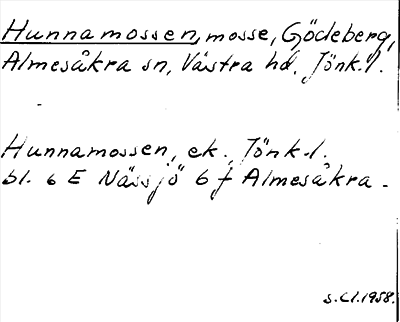 Hunnamossen, mosse, Gödeberg,
Almesåkra sn, Västra hd. Jönk.l.
Hunnamossen, ek. Jönk.l.
bl. 6 E Nässjö 6 f Almesåkra.
s.Cl.1958.